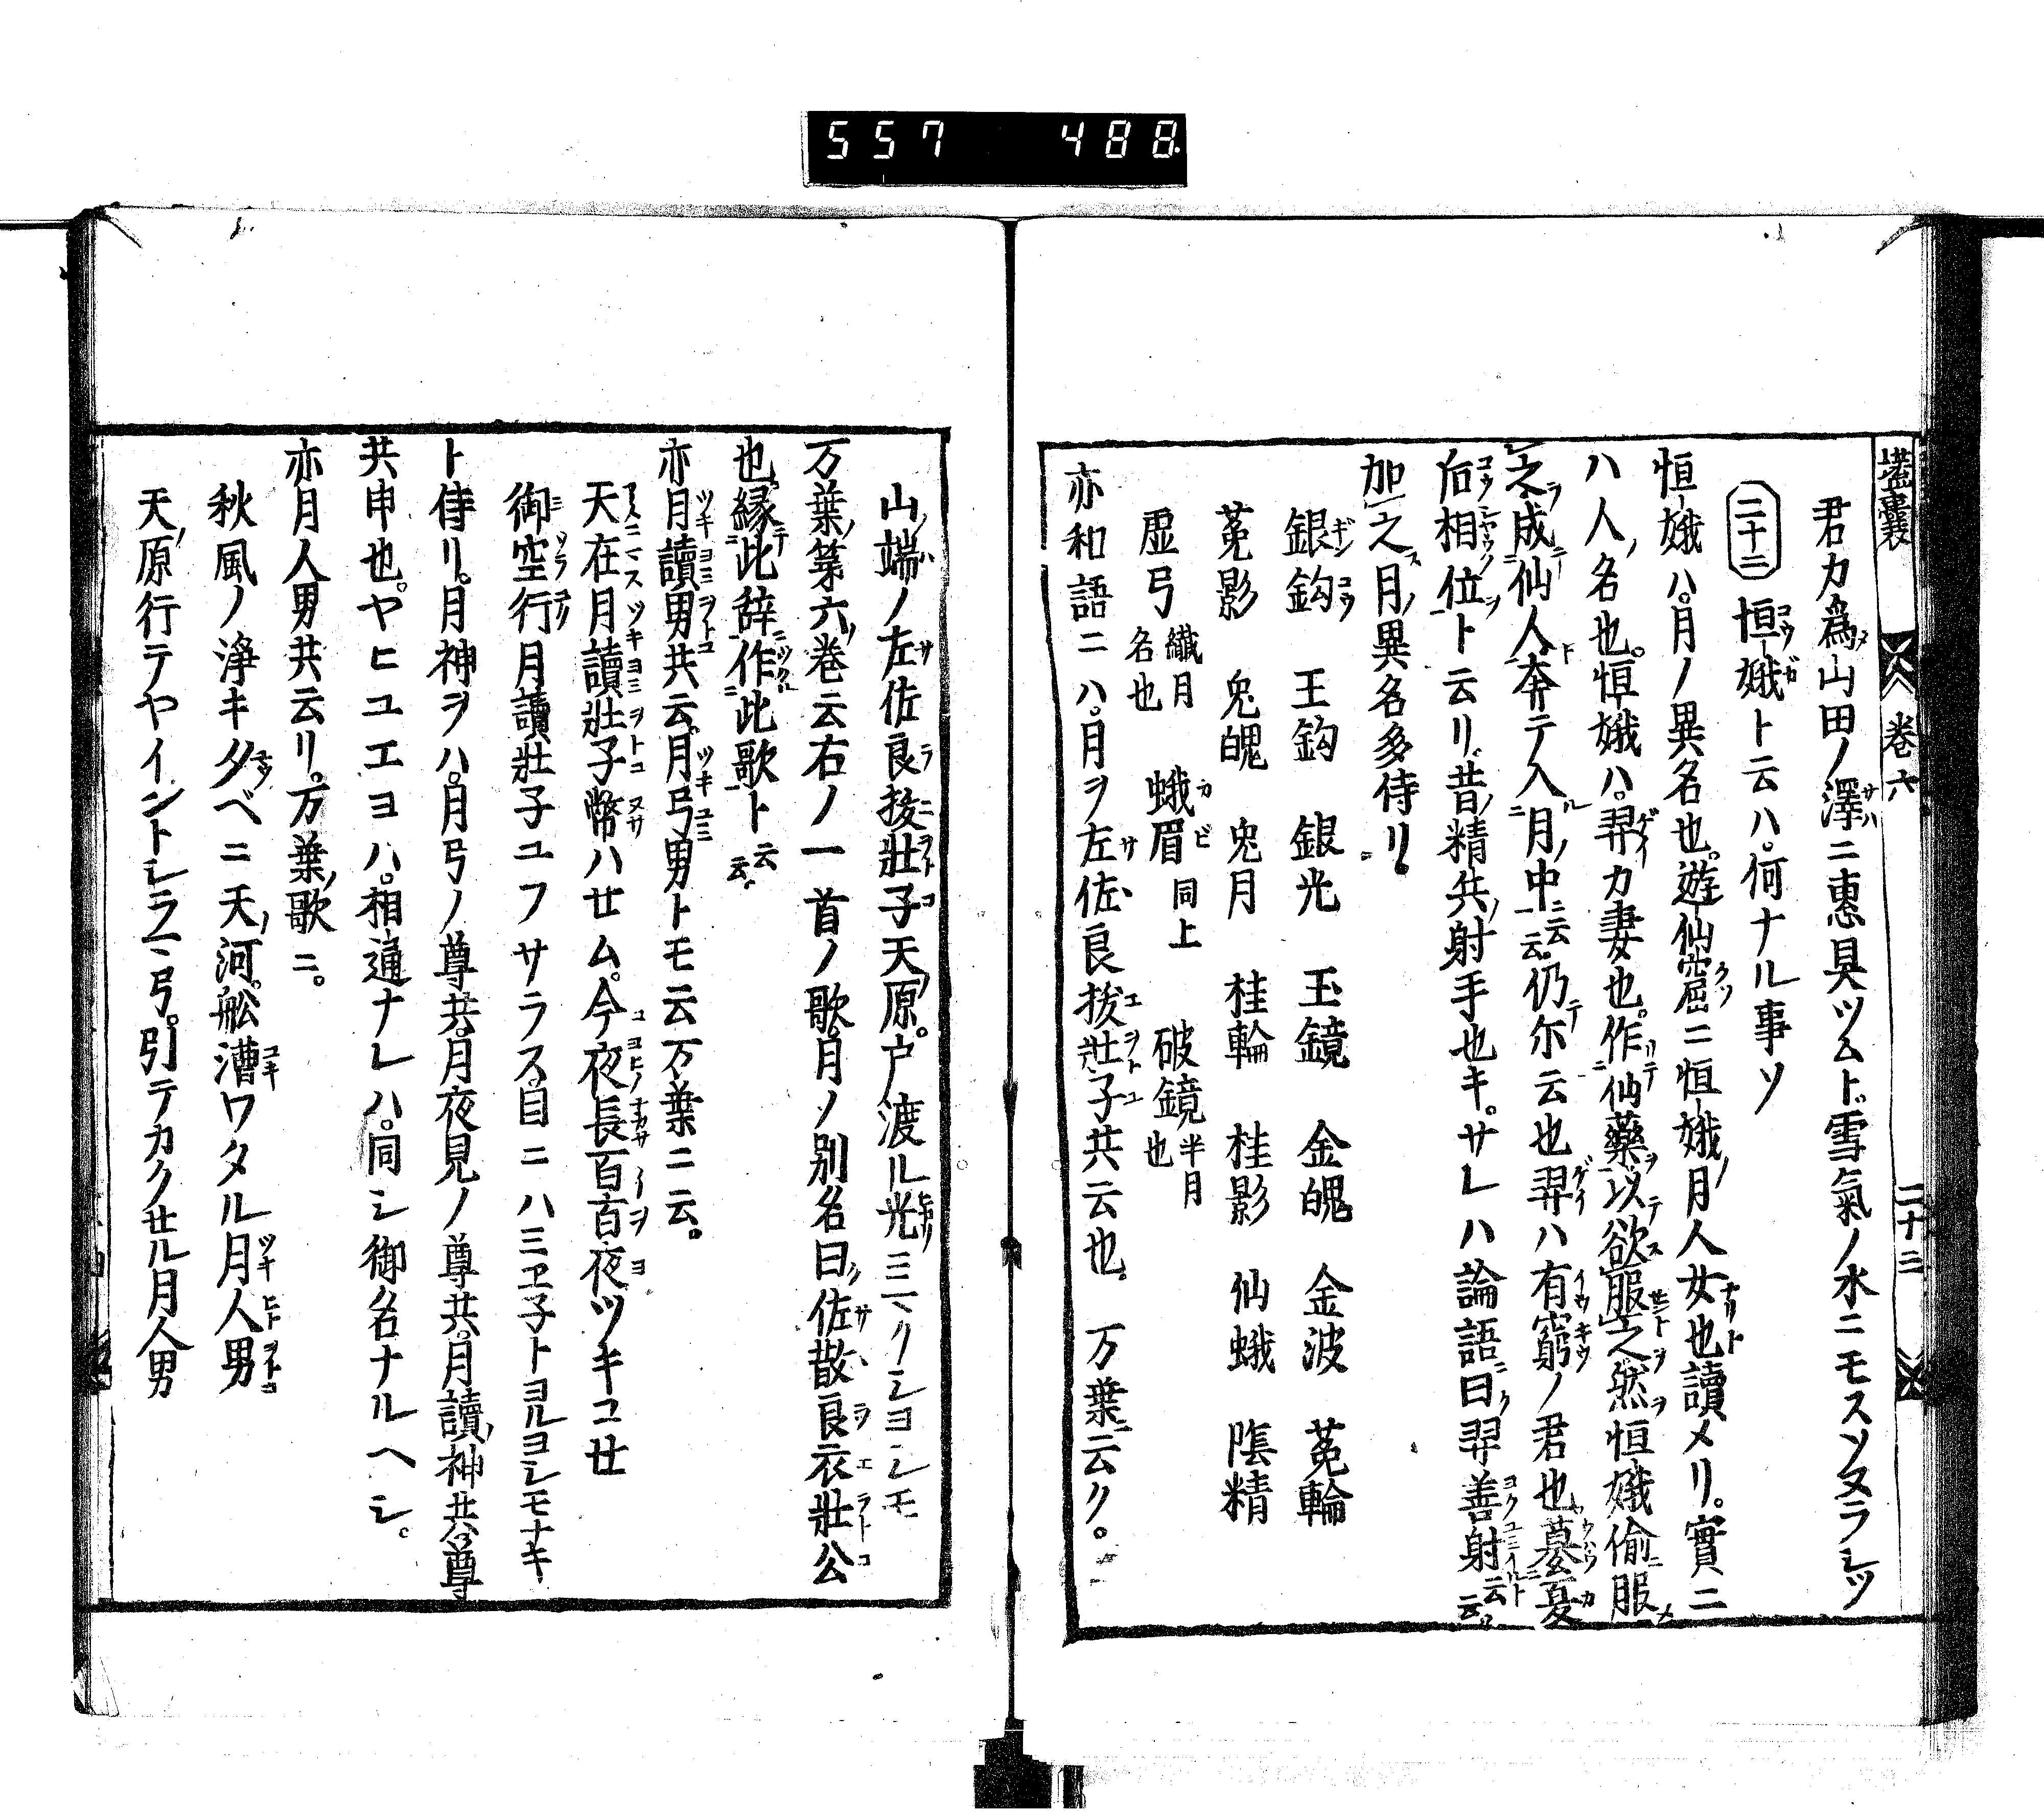 557 488
壒囊 巻六 二十三
君カ為山田ノ澤ニ惠具ツムト雪氣ノ水ニモスソヌラシツ
二十三 恒娥ト云ハ何ナル事ソ
恒娥ハ月ノ異名也遊仙窟ニ恒娥月人女也讀メリ實ニ
ハ人ノ名也恒娥ハ羿カ妻也作仙藥以欲服之然恒娥偷服
之成仙人奔テ入月中云云仍尓云也羿ハ有窮ノ君也簒夏
后相位ト云リ昔精兵射手也キサレハ論語曰羿善射云云
加之月異名多侍リ
銀鈎 王鈎 銀光 玉鏡 金魄 金波 菟輪
菟影 兎魄 兎月 桂輪 桂影 仙蛾 陰精
虚弓 纎月名也 蛾眉 同上 破鏡 半月也
亦和語ニハ月ヲ左佐良㧞壮子共云也 万葉云ク
山端ノ左佐良㧞壮子天原戸渡ル光ミラクシヨシモ
万葉第六巻云右ノ一首ノ歌月ノ別名曰佐散良衣壮公
也縁此辞作此歌ト云云
亦月讀男共云月弓男トモ云万葉ニ云
天在月讀壮子幣ハセム今夜長百百夜ツキコセ
御空行月讀壮子ユフサラス目ニハミヱ子トヨルヨシモナキ
ト侍リ月神ヲハ月弓ノ尊共月夜見ノ尊共月讀神共尊
共申也ヤヒユエヨハ相通ナレハ同シ御名ナルヘシ
亦月人男共云リ万葉歌ニ
秋風ノ浄キタベニ天河舩漕ワタル月人男
天原行テヤイントシラマ弓引テカクセル月人男